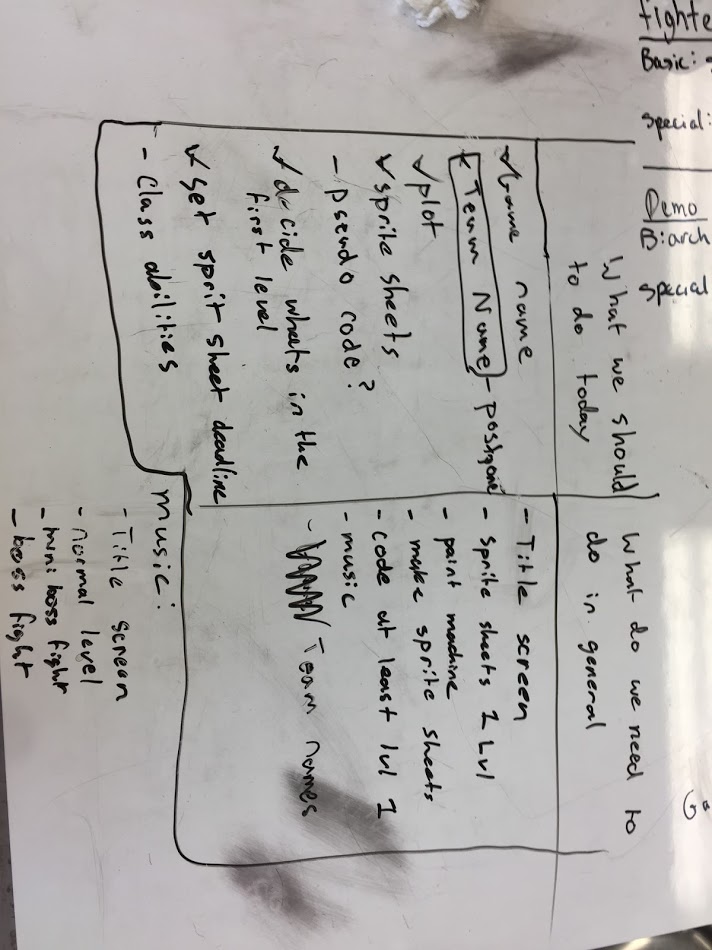 fighte
Basic:
special:
Demo
B:arch
special
What we should
to do today
✓Game name
Team Name - postpone
✓plot
✓sprite sheets
- pseudo code?
✓decide whats in the
first level
✓set sprit sheet deadline
- Class abilities
What do we need to
do in general
- Title screen
- sprite sheets 1 Lvl
- paint machine
- make sprite sheets
- code at least lvl 1
- music
- Team names
music:
- Title screen
- normal level
- mini boss fight
- boss fight